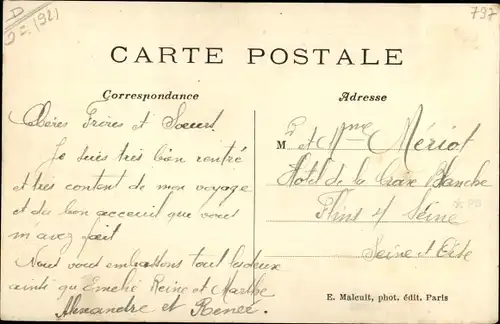 D
Oc. 1921
797
CARTE POSTALE
Correspondance
Adresse
Chères Frères et Soeurs
Je suis très bien rentré
et très content de mon voyage
et du bon acceuil que vous
m'avez fait
Nous vous embrassons tout les deux
ainsi qu'Emelie Reine et Marthe
Alexandre et Renée.
M et Mme Mériot
Hôtel de la Croix Blanche
Flins s/ Seine
Seine et Oise
PB
E. Malcuit, phot. édit. Paris